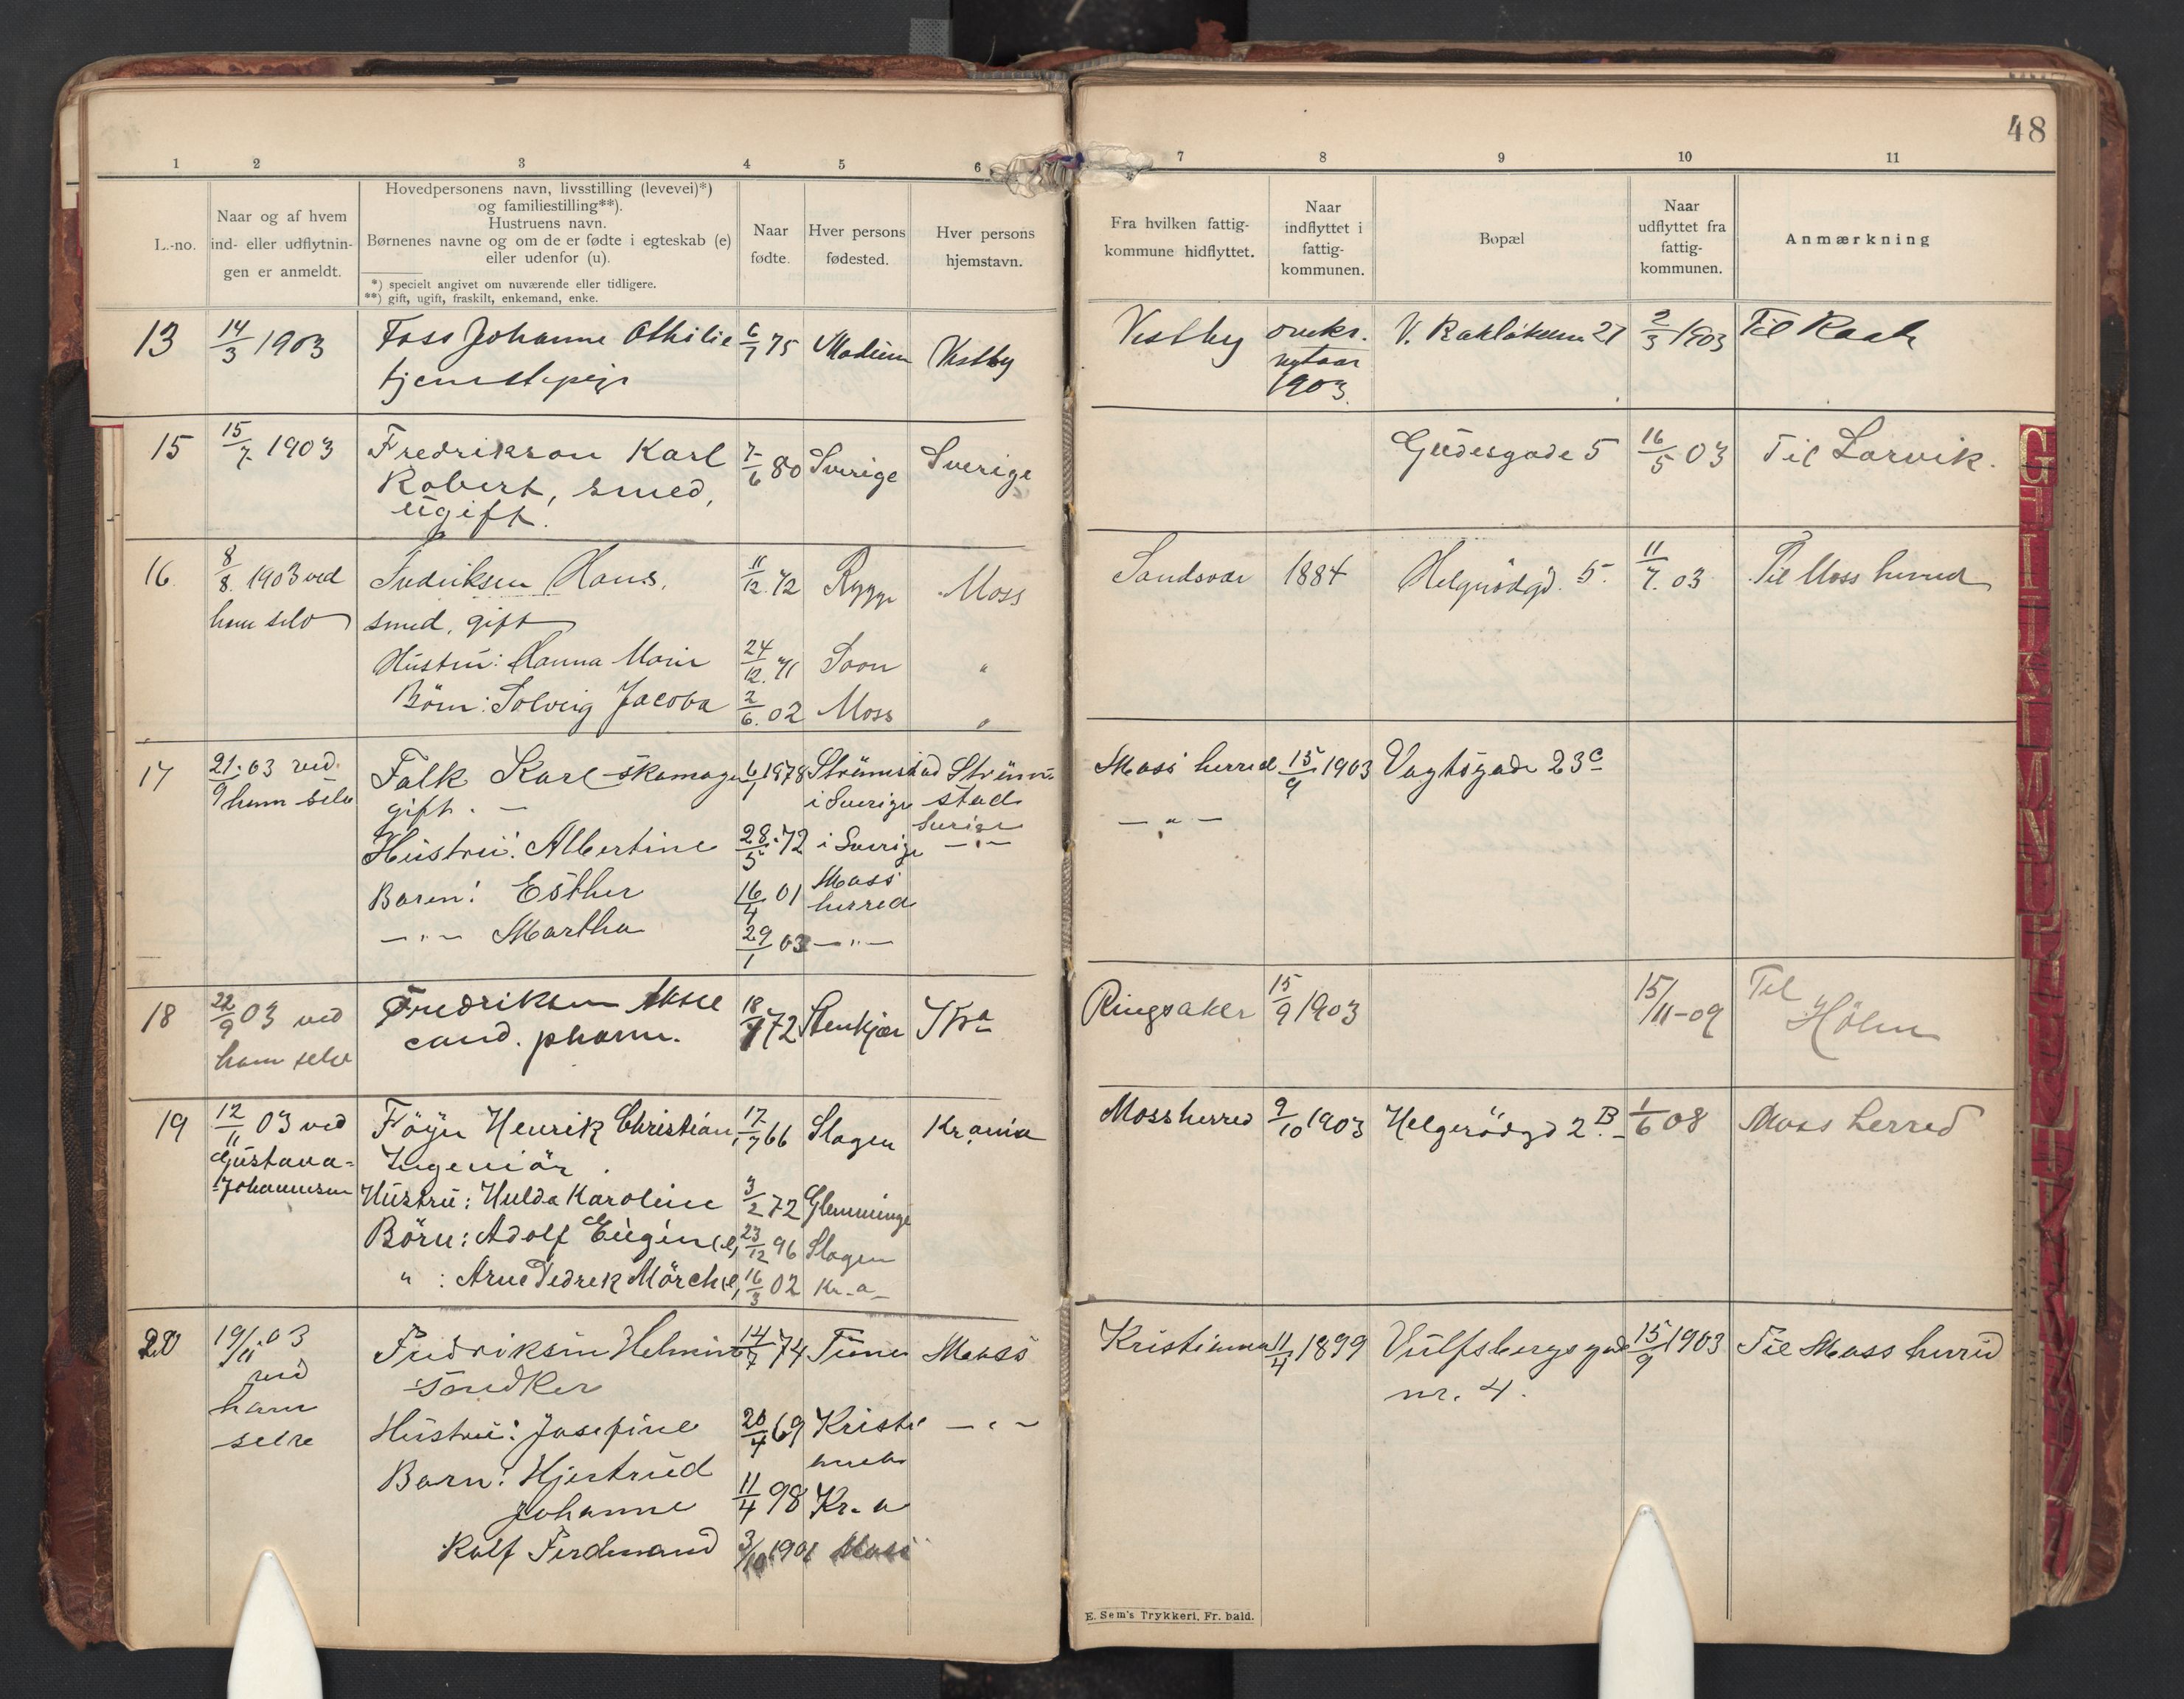 48
1 2 3 4 5 6 7 8 9 10 11
L.-no.
Naar og af hvem
ind- eller udflytnin-
gen er anmeldt.
Hovedpersonens navn, livsstilling (levevei)*)
og familiestilling**).
Hustruens navn.
Børnenes navne og om de er fødte i egteskab (e)
eller udenfor (u).
*) specielt angivet om nuværende eller tidligere.
**) gift, ugift, fraskilt, enkemand, enke.
Naar
fødte.
Hver persons
fødested.
Hver persons
hjemstavn.
Fra hvilken fattig-
kommune hidflyttet.
Naar
indflyttet i
fattig-
kommunen.
Bopæl
Naar
udflyttet fra
fattig-
kommunen.
Anmærkning
13 14/3 1903 Foss Johanne Othilie 6/7 75 Modum Vestby Vestby omkr. 27 2/3 1903 Til
tjenestepige nytaar
1903.
15 15/7 1903 Fredrikson Karl 7/6 80 Sverige Sverige Gudesgade 5 16/5 03 Til Larvik.
Robert, smed,
ugift.
16 8/8. 1903 ved Fredriksen Hans. 11/12. 72 Rygge Moss Sandsvær 1884 Helgerödgd. 5. 11/7. 03 Til Moss herred
ham selv smed, gift
Hustru: Hanna Marie 24/12. 71 Soon "
Börn: Solveig Jacoba 2/6. 02 Moss "
17 21/9. 03 ved Falk Karl skomager 6/1 1878 Strömstad Ström- Moss herred 15/9 1903 Vogtsgade 23 c
ham selv gift. — i Sverige stad — " —
Sverige
Hustru: Albertine 28/5. 72 i Sverige — " —
Barn: Esther 16/4 01 Moss
herred
— " — Martha 29/1 03 — " —
18 22/9 03 ved Fredriksen Aksel 18/ 72 Stenkjær Kra Ringsaker 15/9 1903 15/11-09 Til
ham selv cand. pharm. Hölen
19 12/11 03 ved Föyn Henrik Christian, 17/7 66 Slagen Kr.ania Moss herred 9/10 1903 Helgerödgd 2 B. 1/6 08 Moss herred
Gustava Ingeniör.
Johannesen Hustru: Hulda Karoline 3/2 72 Glemminge
Börn: Adolf Eugén (e, 23/12 96 Slagen
" : Arne Fedrek Mörch (e, 16/3 02 Kr.a
20 19/11.03 Fredriksen Helmin 14/7 74 Tune Moss Kristiania 11/4 1899 Vulfsbergsgade 15/9 1903 Til Moss herred
ved Snedker nr. 4.
ham
selv Hustru: Josefine 20/4 69 Kristi- — " —
ania
Barn: Hjertrud
Johanne 11/4 98 Kr.a
Rolf Ferdinand 3/10 1901 Moss
E. Sem's Trykkeri, Fr. hald.